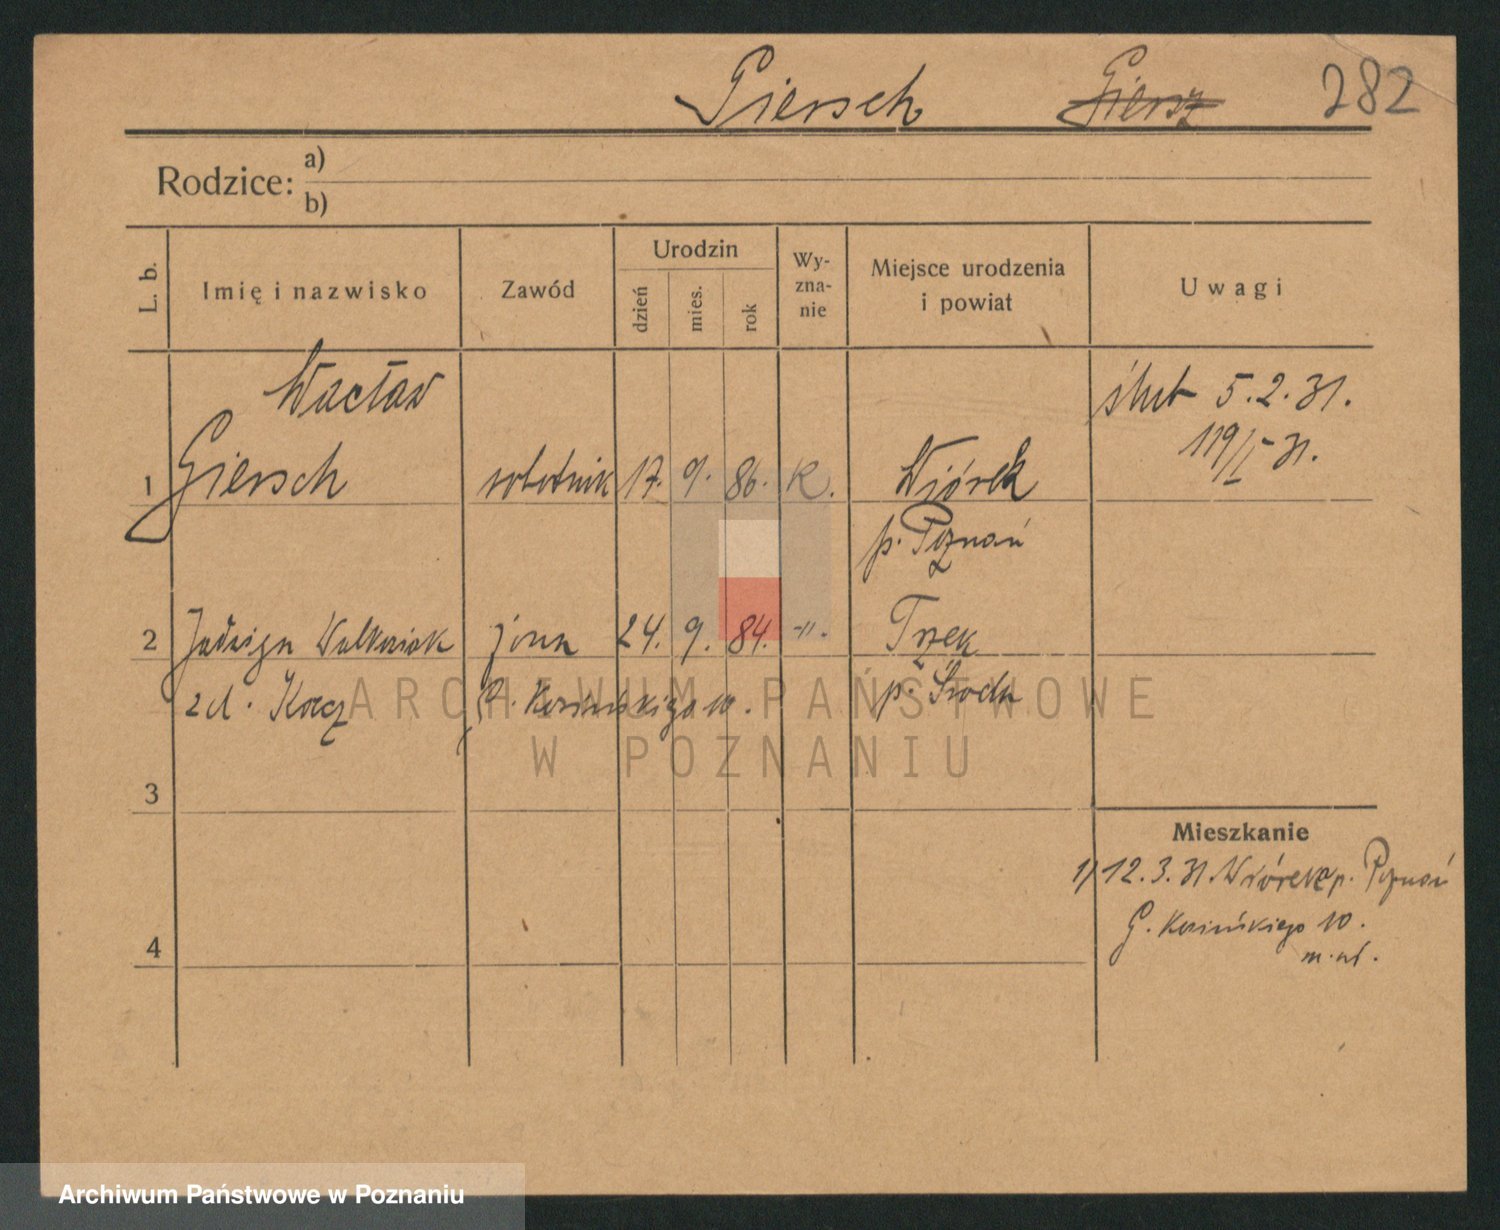 Giersch Giersz 282
Rodzice: a)
b)
L. b. Imię i nazwisko Zawód Urodzin dzień mies. rok Wy-zna-nie Miejsce urodzenia i powiat Uwagi
Wacław ślub 5.2.31.
119/I 31.
1 Giersch robotnik 17. 9. 86. K. Wiórek
p. Poznań
2 Jadwiga Walkowiak żona 24. 9. 84. -"-. Trzek
zd. G. 10. p. Środa
ARCHIWUM PAŃSTWOWE
W POZNANIU
3
Mieszkanie
1) 12.3.31. p. Poznań
G. 10.
4
Archiwum Państwowe w Poznaniu